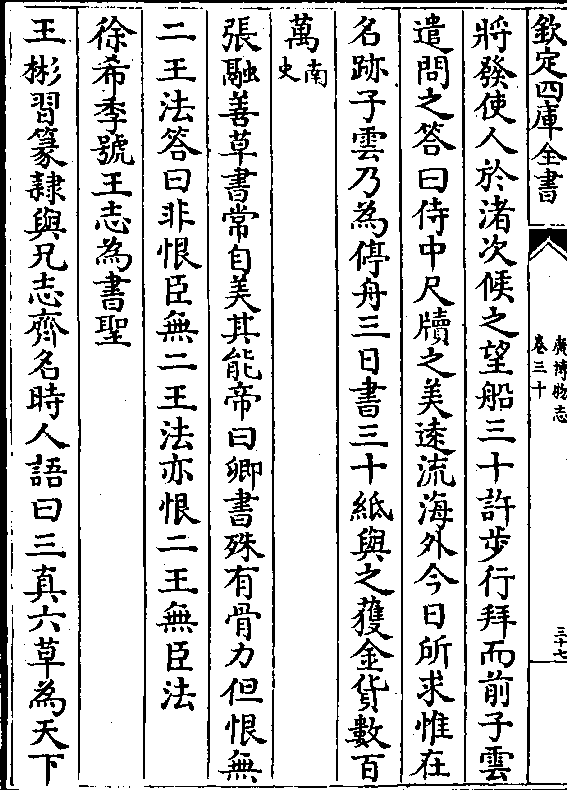 欽定四庫全書
廣博物志
卷三十
三十七
將發使人於渚次候之望船三十許步行拜而前子雲
遣問之答曰侍中尺牘之美逺流海外今日所求惟在
名跡子雲乃為停舟三日書三十紙與之獲金貨數百
萬南史
張融善草書常自美其能帝曰卿書殊有骨力但恨無
二王法答曰非恨臣無二王法亦恨二王無臣法
徐希季號王志為書聖
王彬習篆隷與兄志齊名時人語曰三真六草為天下